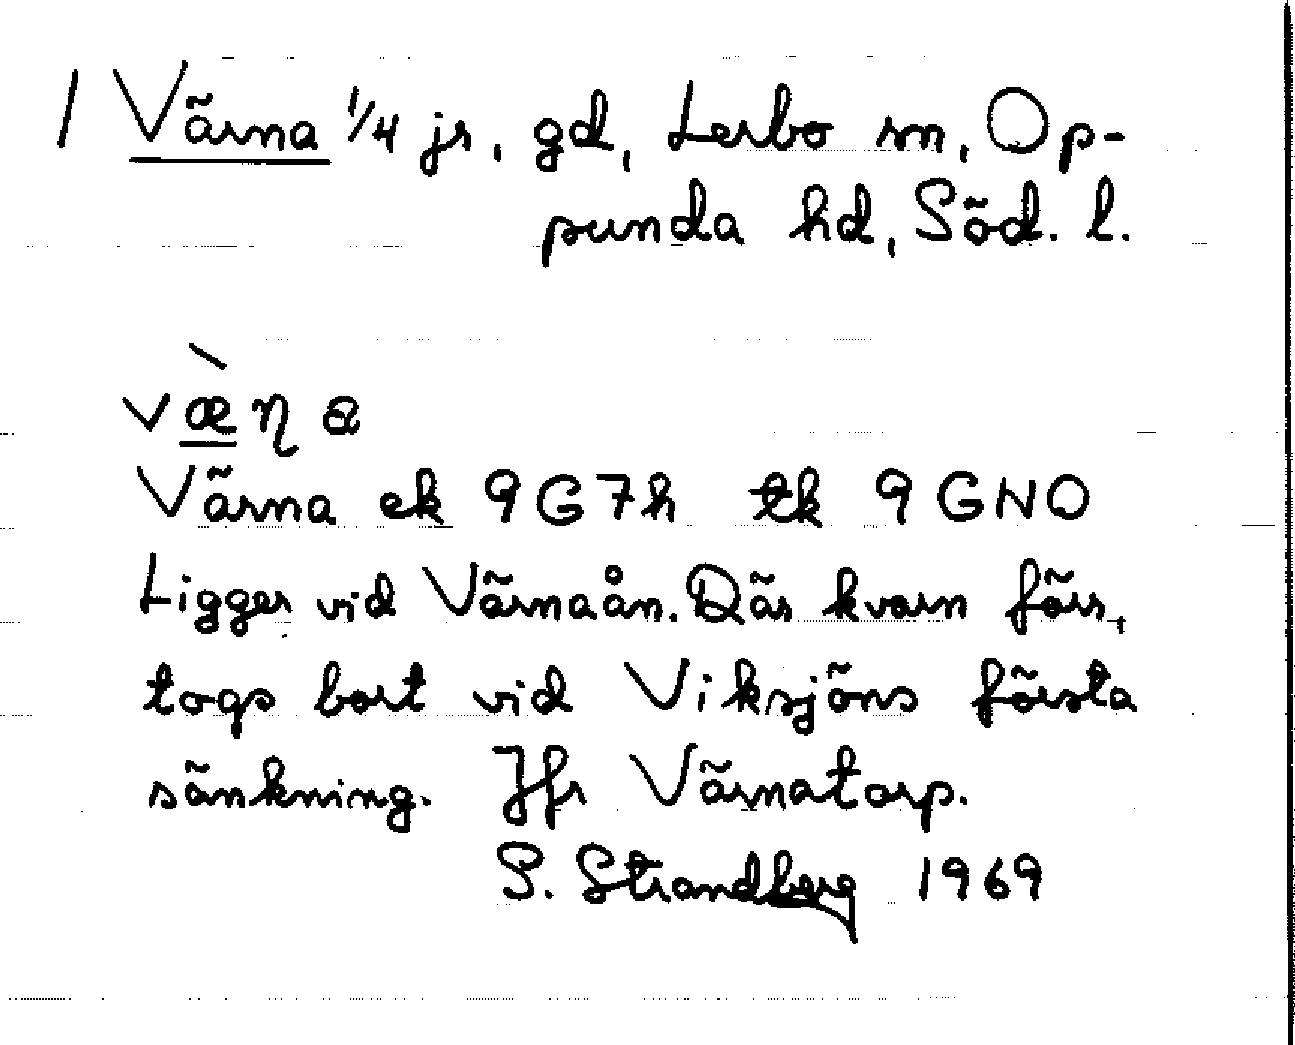 1 Värna 1/4 js, gd, Lerbo sn, Op-
punda hd, Söd. l.
væ̀ɳa
Värna ek 9G7h tk 9GNO
Ligger vid Värnaån. Där kvarn förr,
togs bort vid Viksjöns första
sänkning. Jfr Värnatorp.
S. Strandberg 1969